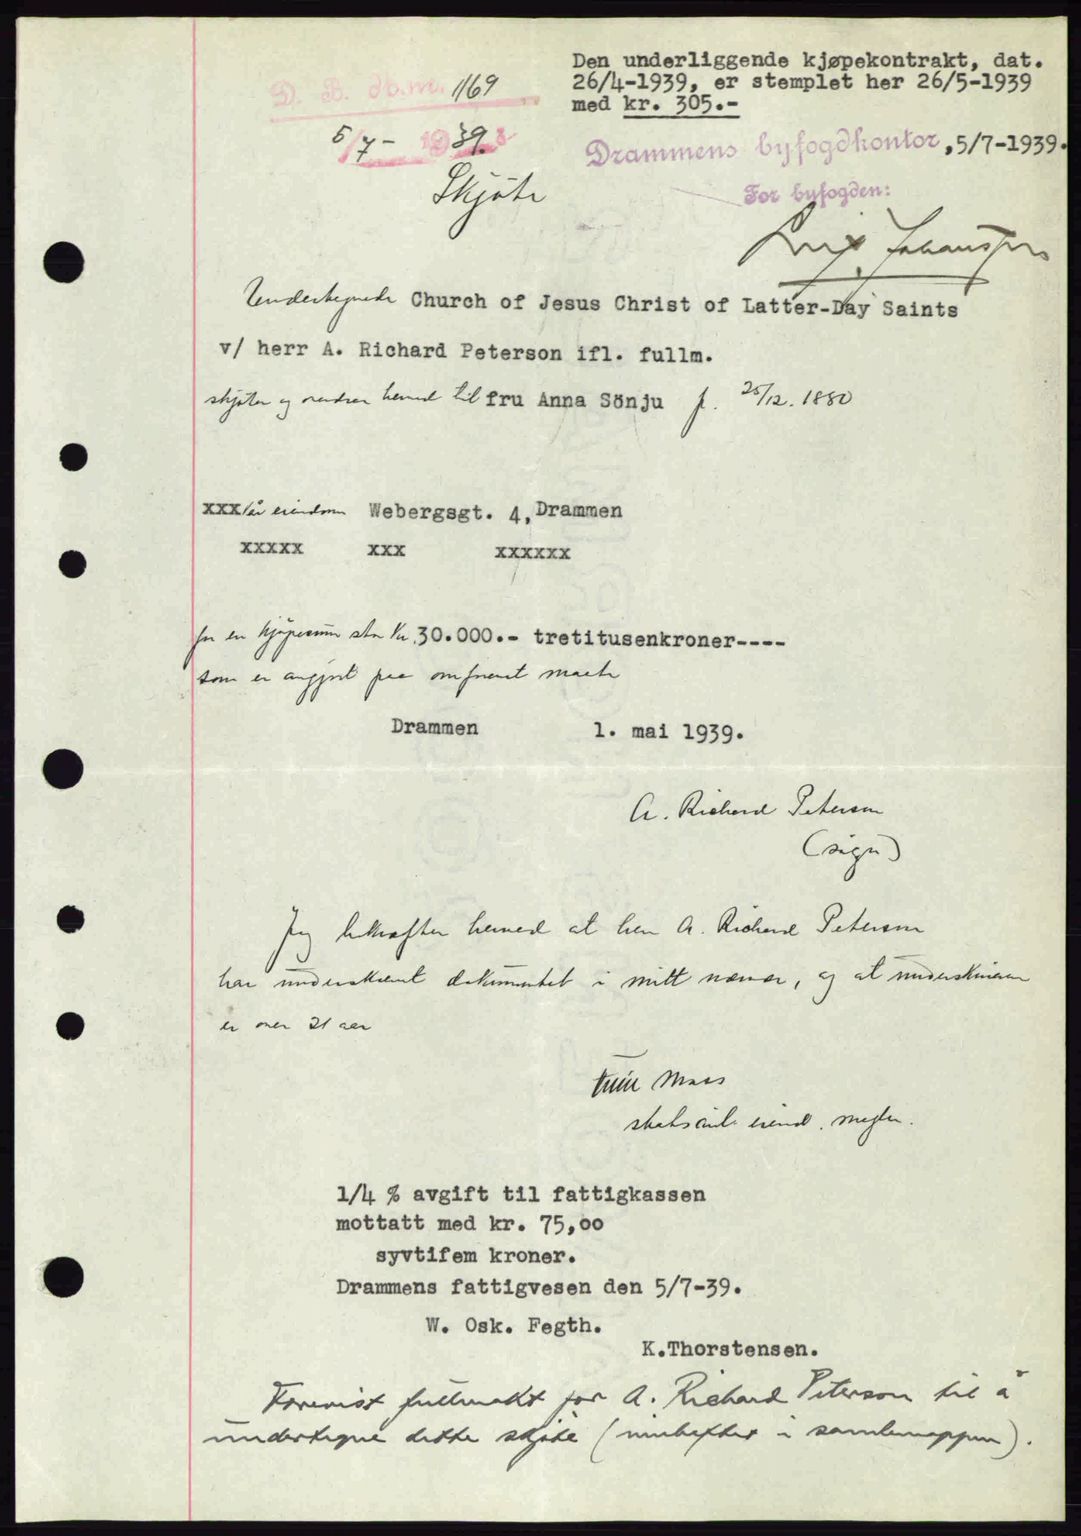 Den underliggende kjøpekontrakt, dat.
26/4-1939, er stemplet her 26/5-1939
med kr. 305.-
D. B. db.nr. 1169
5/7- 1939.
Drammens byfogdkontor, 5/7-1939.
For byfogden:
Skjøte
Undertegnede Church of Jesus Christ of Latter-Day Saints
v/ herr A. Richard Peterson ifl. fullm.
skjøter og overdrar herved til fru Anna Sönju f. 25/12. 1880
xxx vår eiendom Webergsgt. 4, Drammen
xxxxx xxx xxxxxx
for en kjøpesum stor Kr. 30.000.- tretitusenkroner----
som er avgjort paa omforenet maate
Drammen 1. mai 1939.
A. Richard Peterson
(sign)
Jeg bekrefter herved at herr A. Richard Peterson
har underskrevet dokumentet i mitt nærvær, og at underskriveren
er over 21 aar
Maas
statsaut. eiend. megler.
1/4 % avgift til fattigkassen
mottatt med kr. 75,00
syvtifem kroner.
Drammens fattigvesen den 5/7-39.
W. Osk. Fegth.
K.Thorstensen.
Forevist fullmakt for A. Richard Peterson til å
undertegne dette skjøte (innheftet i samlemappen).